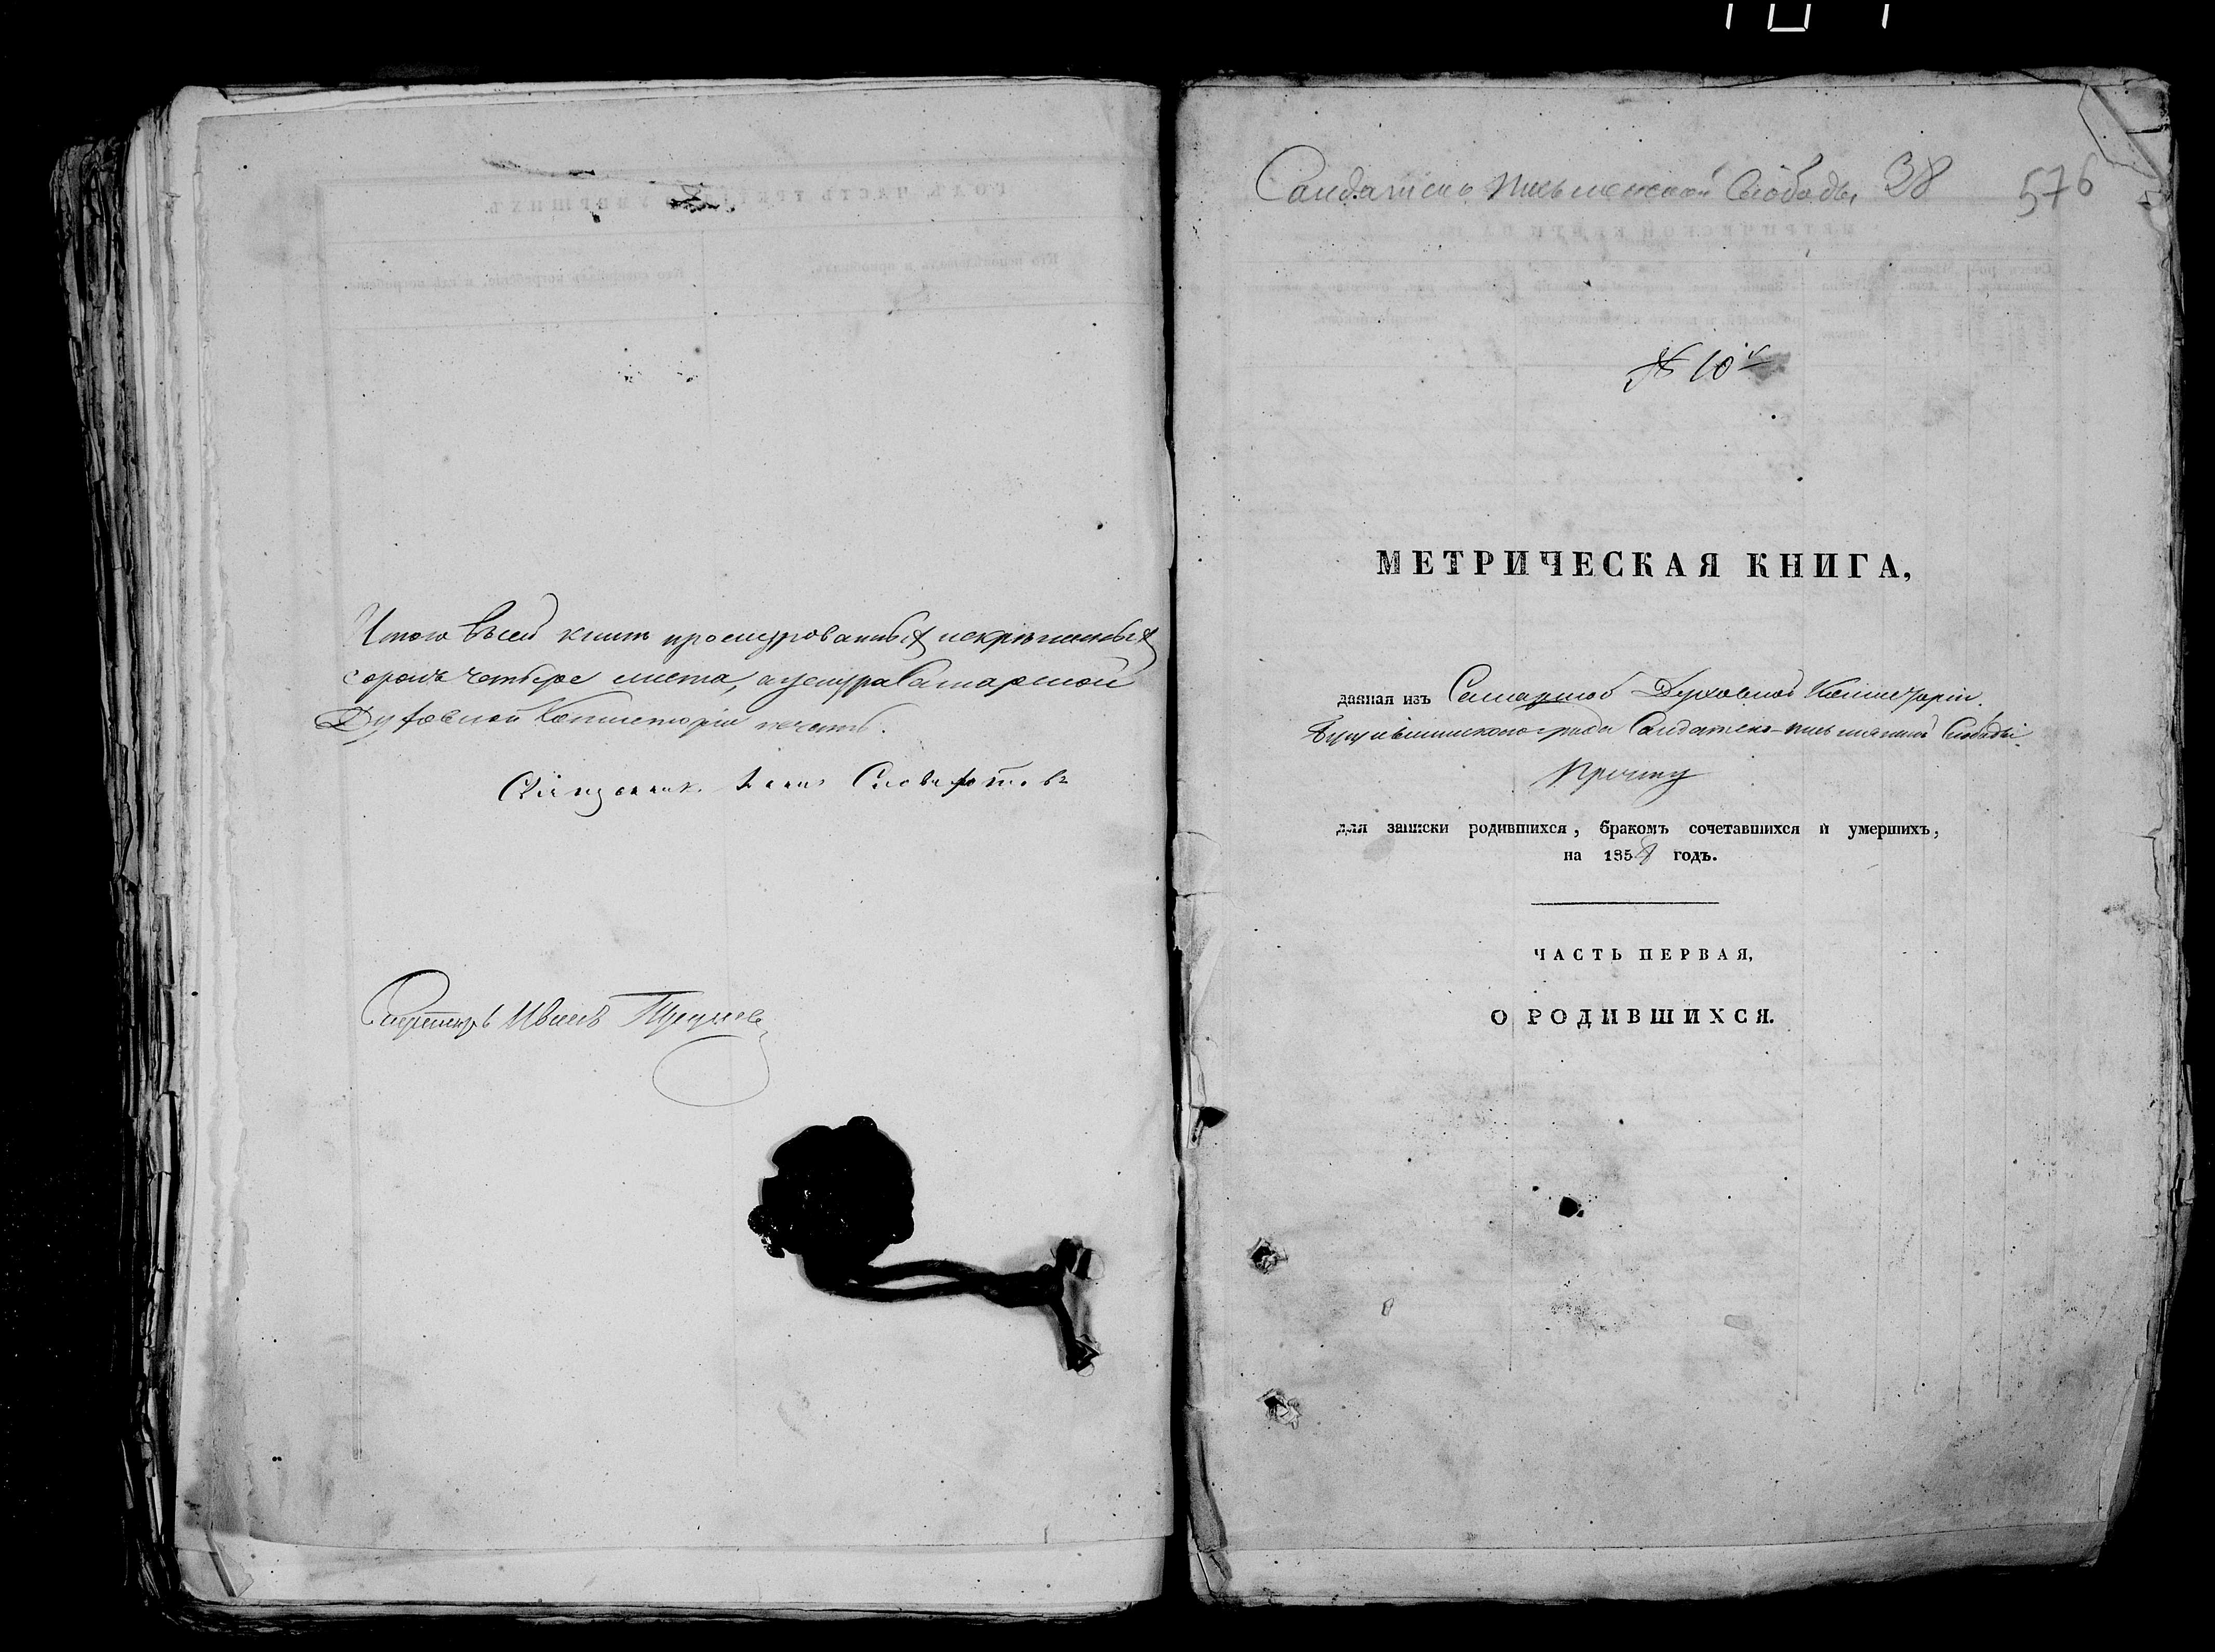 Итого в сей книге прошнурованныхъ и скрѣпленныхъ
сорокъ четыре листа, а у шнура Самарской
Духовной Консисторіи печать.
Секретарь Иванъ
Салдатско Письменской Слободы 38 576
№ 10й
МЕТРИЧЕСКАЯ КНИГА,
данная изъ Самарской Духовной Консисторіи
Салдатско-письменной Слободы
причту
для записки родившихся, бракомъ сочетавшихся и умершихъ,
на 1858 годъ.
ЧАСТЬ ПЕРВАЯ,
О РОДИВШИХСЯ.